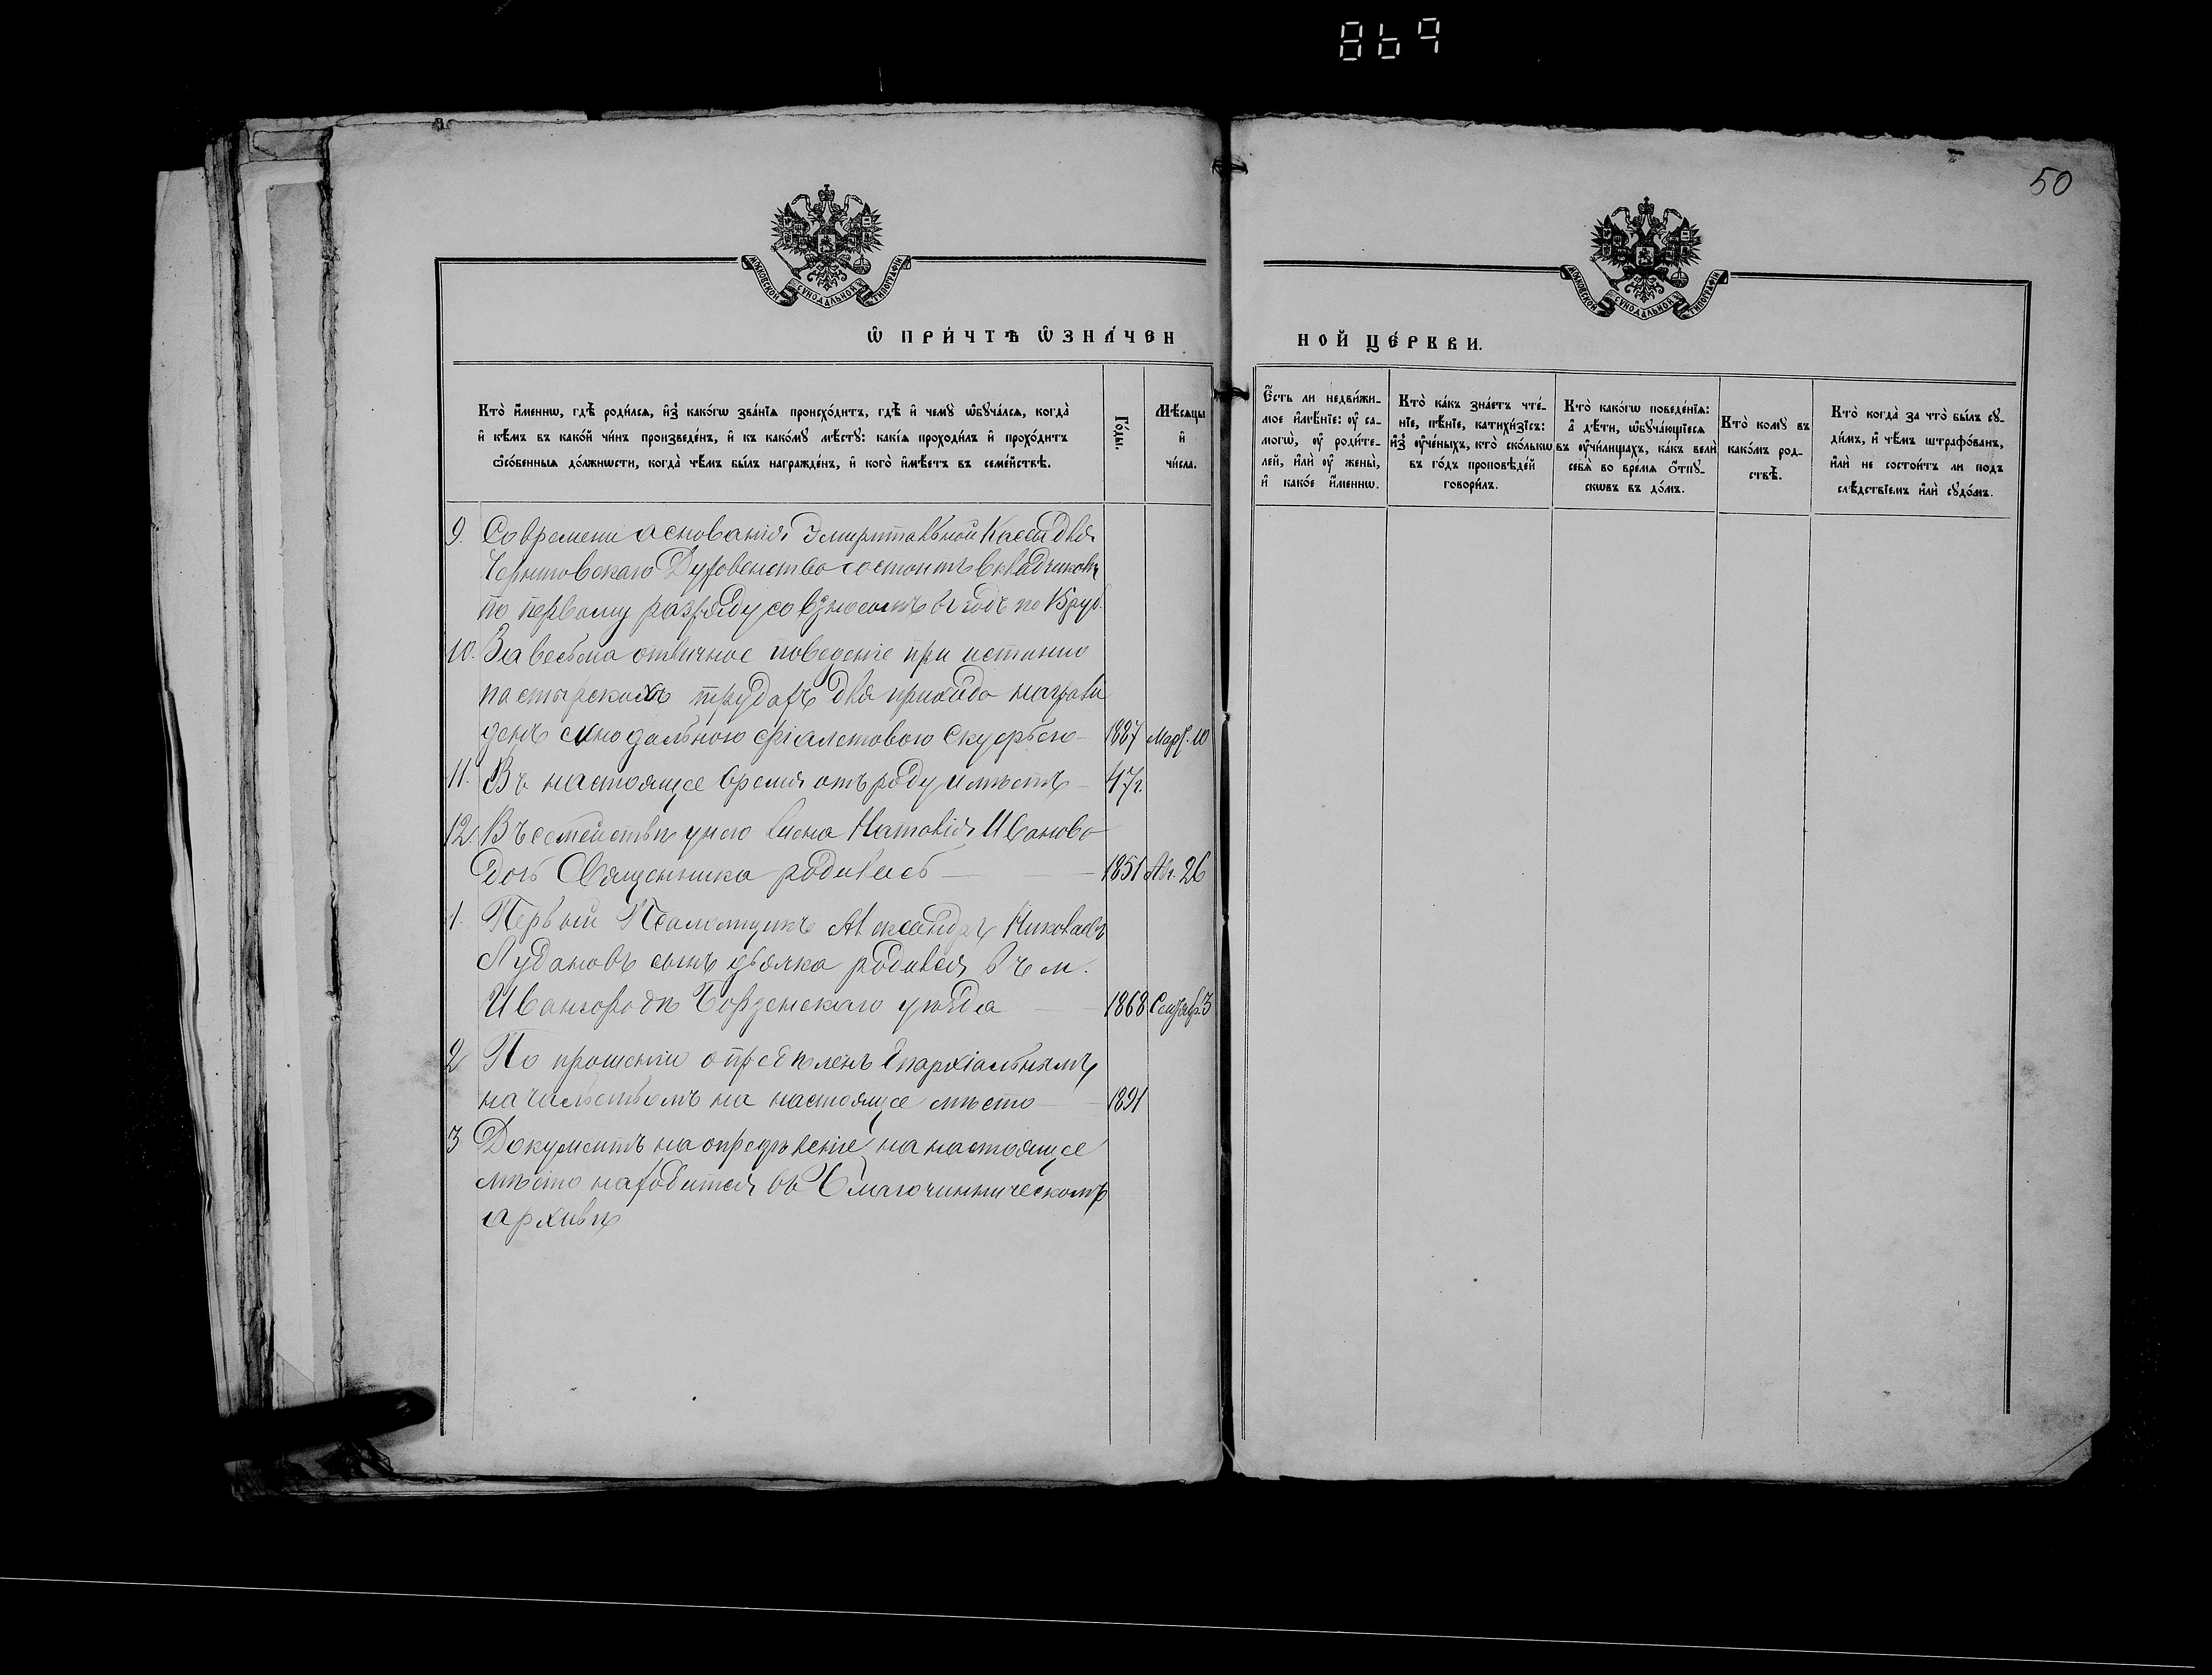 869
50
МОСКОВСКОЙ СѴНОДАЛЬНОЙ ТИПОГРАФІИ
МОСКОВСКОЙ СѴНОДАЛЬНОЙ ТИПОГРАФІИ
Ѡ҆ ПРИ́ЧТѢ Ѡ҆ЗНА́ЧЕН
НОЙ ЦЕ́РКВИ.
Кто̀ и҆́меннѡ, гдѣ̀ роди́лсѧ, и҆з̾ како́гѡ зва́нїѧ происхо́дитъ, гдѣ̀ и҆ чемꙋ̀ ѡ҆бꙋча́лсѧ, когда̀
и҆ кѣ́мъ въ како́й чи́нъ произведе́нъ, и҆ къ како́мꙋ мѣ́стꙋ: какі́ѧ проходи́лъ и҆ прохо́дитъ
ѡ҆со́бенныѧ до́лжнѡсти, когда̀ чѣ́мъ бы́лъ награжде́нъ, и҆ кого̀ и҆мѣ́етъ въ семе́йствѣ.
Го́ды.
Мѣ́сѧцы
и҆
чи́сла.
Е҆́сть ли недви́жи-
мое и҆мѣ́нїе: ᲂу҆ са-
могѡ̀, ᲂу҆ роди́те-
лей, и҆лѝ ᲂу҆ жены̀,
и҆ како́е и҆́меннѡ.
Кто̀ ка́къ зна́етъ чте́-
нїе, пѣ́нїе, катихи́зїсъ:
и҆з̾ ᲂу҆че́ныхъ, кто̀ ско́лькѡ
въ го́дъ проповѣ́дей
говори́лъ.
Кто̀ како́гѡ поведе́нїѧ:
а҆ дѣ́ти, ѡ҆бꙋча́ющїесѧ
въ ᲂу҆чи́лищахъ, ка́къ велѝ
себѧ̀ во вре́мѧ ѿпꙋ-
скѡвъ въ до́мъ.
Кто̀ комꙋ̀ въ
како́мъ род-
ствѣ̀.
Кто̀ когда̀ за что̀ бы́лъ сꙋ-
ди́мъ, и҆ чѣ́мъ штрафо́ванъ,
и҆лѝ не состои́тъ ли подъ
слѣ́дствїемъ и҆лѝ сꙋдо́мъ.
9. Со времени аснованія Эмиритальной Кассы для
Черниговскаго Духовенства состоитъ вкладчикомъ
по первому разряду со взносомъ въ годъ по 15 руб.
10. За весьма отличное поведеніе при истинно
пастырскихъ трудахъ для прихода награж
денъ синодальною фіалетовою Скуфьею 1887 Март. 10
11. Въ настоящее время отъ роду имѣетъ 47 г.
12. Въ семействѣ у него жена Наталія Иванова
дочь Священника родилась 1851 Авг. 26
1. Первый Псаломщикъ Александръ Николаевъ
сынъ дьячка родился въ м.
Ивангородѣ Борзенскаго уѣзда 1868 Сентяб. 3
2 По прошенію опредѣленъ Епархіальнымъ
начальствомъ на настоящее мѣсто 1891
3 Документъ на опредѣленіе на настоящее
мѣсто находится въ Благочинническомъ
архивѣ